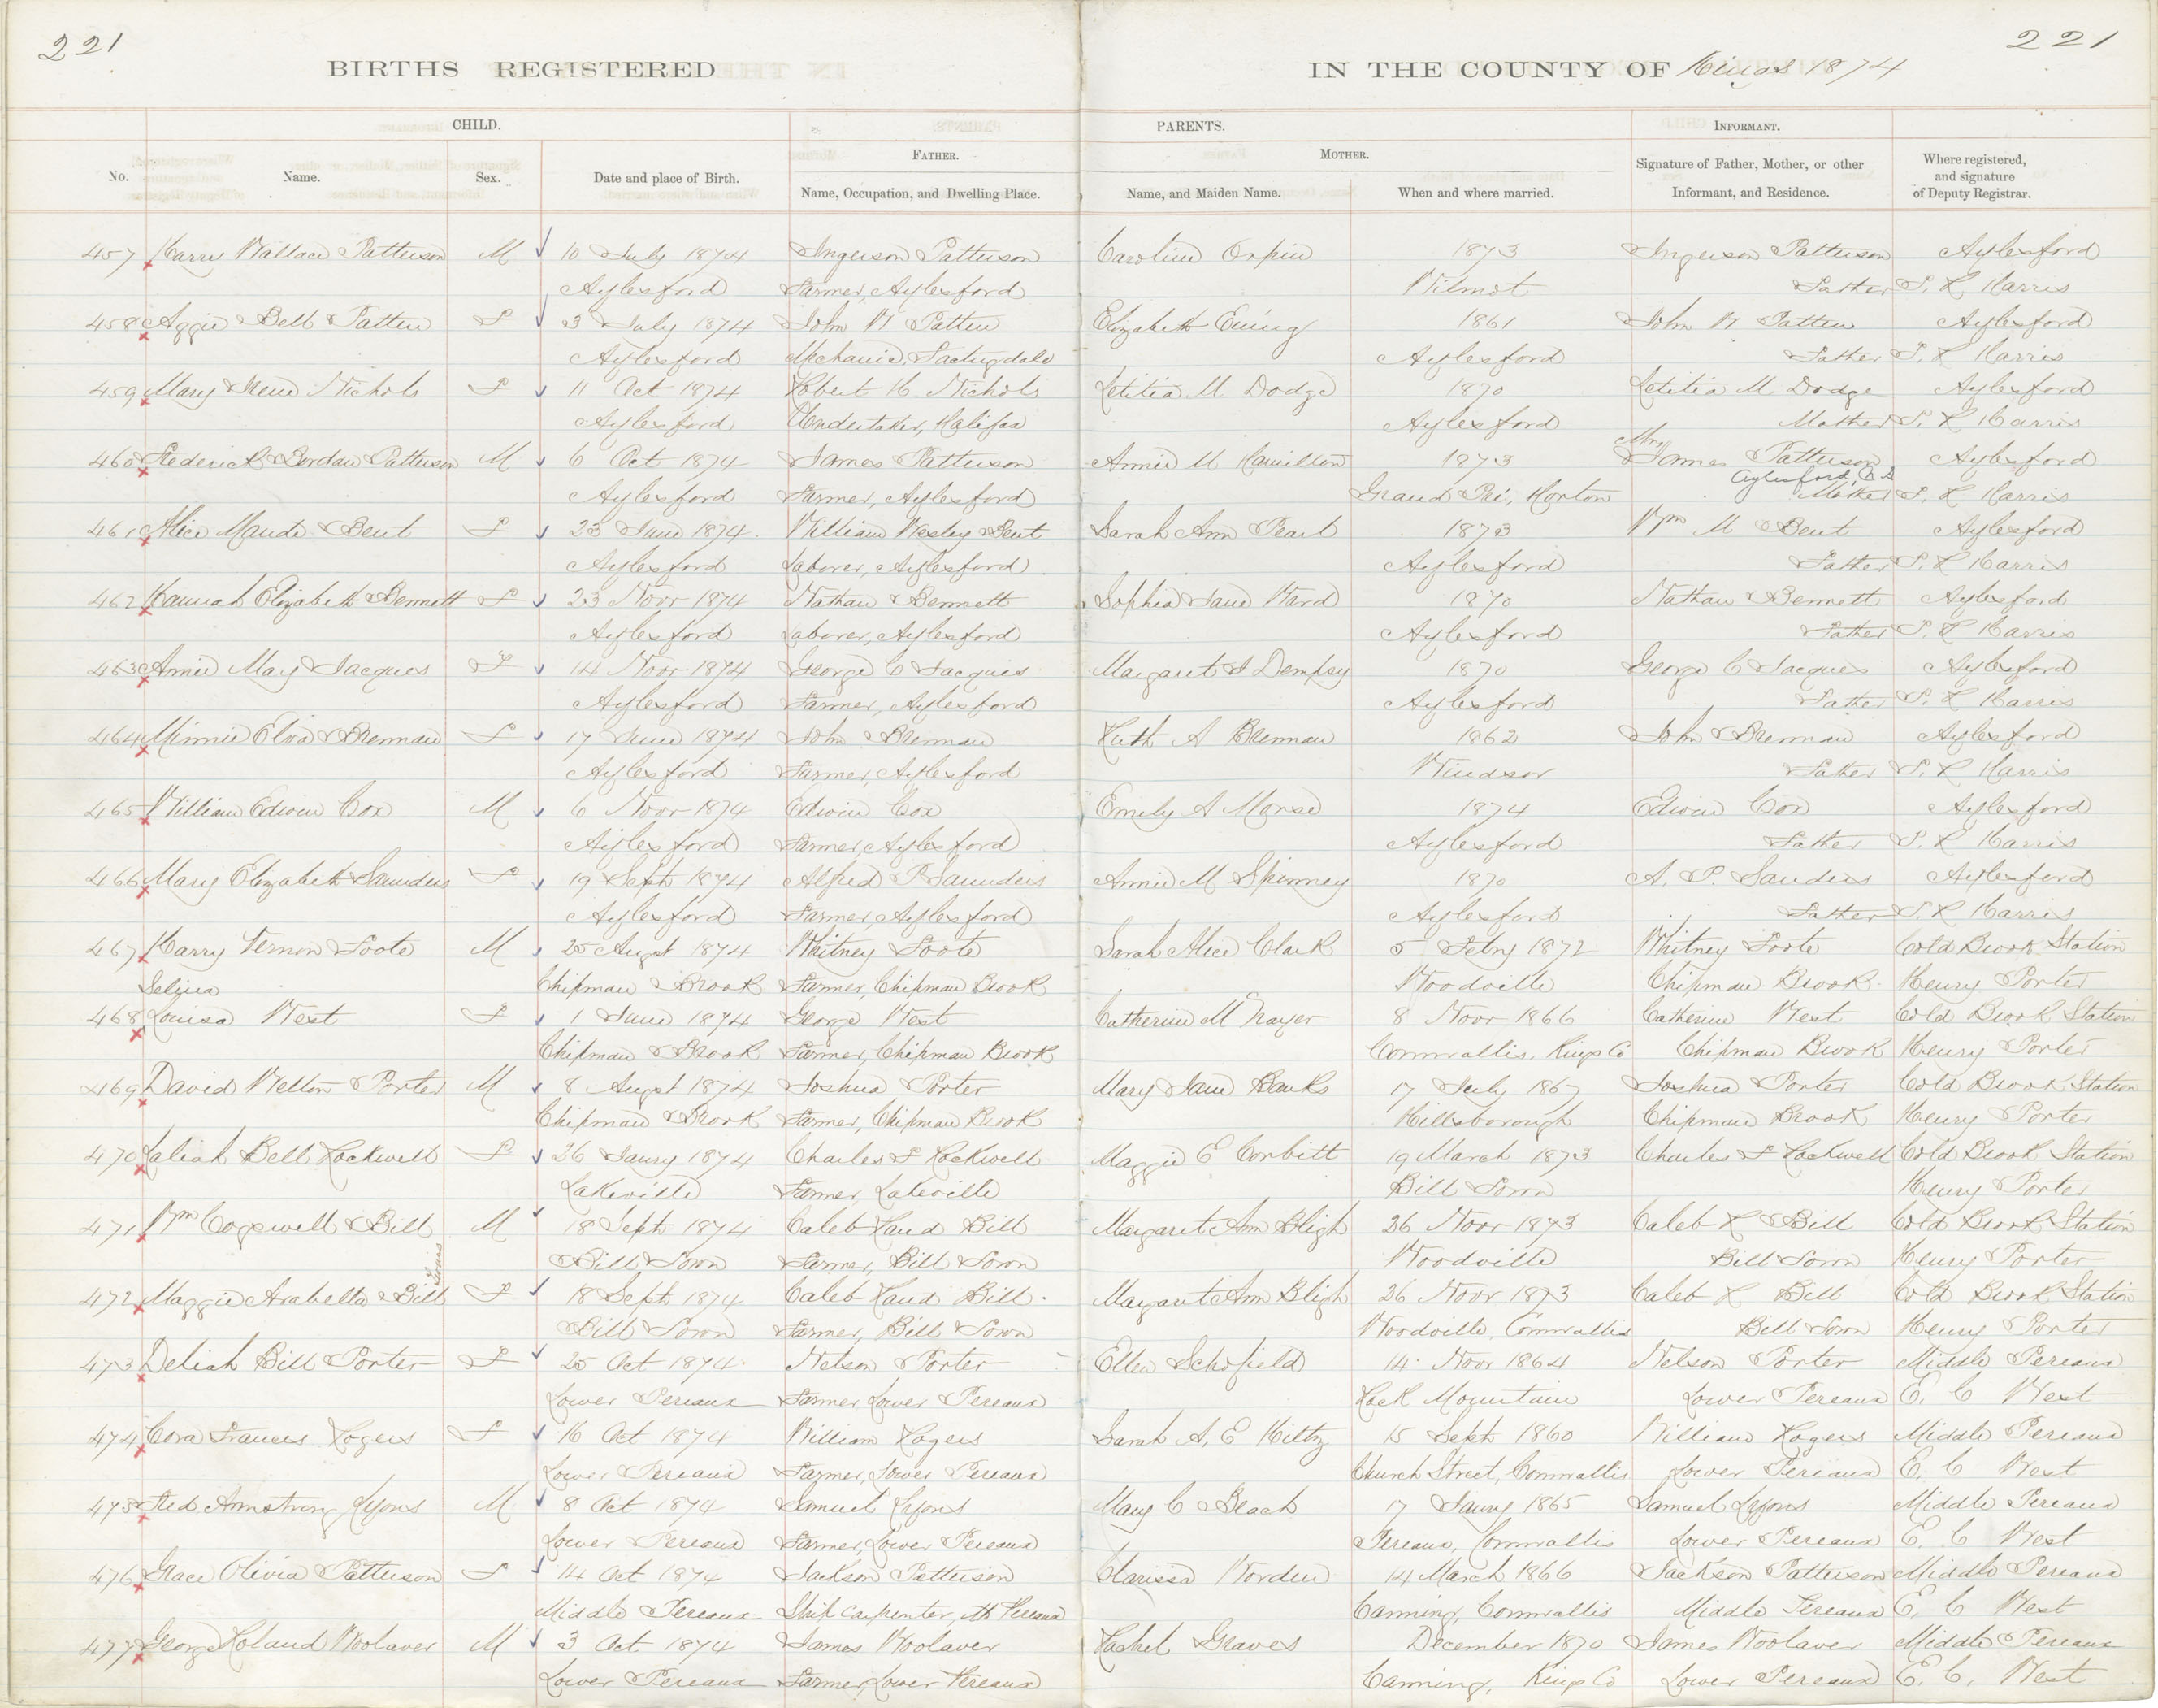 221
221
BIRTHS REGISTERED
IN THE COUNTY OF Kings 1874
CHILD.
PARENTS.
INFORMANT.
No.
Name.
Sex.
Date and place of Birth.
FATHER.
Name, Occupation, and Dwelling Place.
MOTHER.
Name, and Maiden Name.
When and where married.
Signature of Father, Mother, or other
Informant, and Residence.
Where registered,
and signature
of Deputy Registrar.
457 Harry Wallace Patterson M 10 July 1874 Ingerson Patterson Caroline Orpin 1873 Ingerson Patterson Aylesford
Aylesford Farmer, Aylesford Wilmot Father T. R Harris
458 Aggie Bell Patten F 3 July 1874 John W Patten Elizabeth Ewing 1861 John W Patten Aylesford
Aylesford Mechanic, Aylesford Father T. R Harris
459 Mary Irene Nichols F 11 Oct 1874 Robert H. Nichols Letitia M Dodge 1870 Letitia M. Dodge Aylesford
Aylesford Undertaker, Halifax Aylesford Mother T. R Harris
Mrs
460 Frederick Borden Patterson M 6 Oct 1874 James Patterson Annie M Hamilton 1873 James Patterson Aylesford
Aylesford, N.S
Aylesford Farmer, Aylesford Grand Pré, Horton Mother T. R Harris
461 Alice Maude Bent F 23 June 1874. William Wesley Bent Sarah Ann Pearl 1873 Wm M Bent Aylesford
Aylesford Laborer, Aylesford Aylesford Father T. R Harris
462 Hannah Elizabeth Bennett F 23 Novr 1874 Nathan Bennett Sophia Jane Ward 1870 Nathan Bennett Aylesford
Aylesford Laborer, Aylesford Aylesford Father T. R Harris
463 Annie May Jacques F 14 Novr 1874 George C Jacques Margaret J Dempsey 1870 George C Jacques Aylesford
Aylesford Farmer, Aylesford Aylesford Father T. R Harris
464 Minnie Elva Brennan F 17 June 1874 John Brennan Ruth A Brennan 1862 John Brennan Aylesford
Aylesford Farmer, Aylesford Windsor Father T. R Harris
465 William Edwin Cox M 6 Novr 1874 Edwin Cox Emily A Morse 1874 Edwin Cox Aylesford
Aylesford Farmer, Aylesford Aylesford Father T. R Harris
466 Mary Elizabeth Saunders F 19 Septr 1874 Alfred P Saunders Annie M Spinney 1870 A. P. Sauders Aylesford
Aylesford Farmer, Aylesford Aylesford Father T. R Harris
467 Harry Vernon Foote M 25 Augst 1874 Whitney Foote Sarah Alice Clark 5 Febry 1872 Whitney Foote Cold Brook Station
Selina Chipman Brook Farmer, Chipman Brook Woodville Chipman Brook Henry Porter
468 Louisa West F 1 June 1874 George West Catherine M Thayer 8 Novr 1866 Catherine West Cold Brook Station
Chipman Brook Farmer, Chipman Brook Cornwallis, Kings Co Chipman Brook Henry Porter
469 David Welton Porter M 8 Augst 1874 Joshua Porter Mary Jane Banks 17 July 1867 Joshua Porter Cold Brook Station
Chipman Brook Farmer, Chipman Brook Hillsborough Chipman Brook Henry Porter
470 Laliah Bell Rockwell F 26 Janry 1874 Charles F Rockwell Maggie E Corbitt 19 March 1873 Charles F Rockwell Cold Brook Station
Lakeville Farmer, Lakeville Bill Town Henry Porter
471 Wm Cogswell Bill M 18 Septr 1874 Caleb Rand Bill Margaret Ann Bligh 26 Novr 1873 Caleb R Bill Cold Brook Station
Bill Town Farmer, Bill Town Woodville Bill Town Henry Porter
Twins
472 Maggie Arabella Bill F 18 Septr 1874 Caleb Rand Bill. Margaret Ann Bligh 26 Novr 1873 Caleb R Bill Cold Brook Station
Bill Town Farmer, Bill Town Woodville, Cornwallis Bill Town Henry Porter
473 Deliah Bill Porter F 25 Oct 1874 Nelson Porter Ellen Schofield 14 Novr 1864 Nelson Porter Middle Pereaux
Lower Pereaux Farmer, Lower Pereaux Rock Mountain Lower Pereaux E. C West
474 Cora Frances Rogers F 16 Oct 1874 William Rogers Sarah A. E Hiltz 15 Septr 1860 William Rogers Middle Pereaux
Lower Pereaux Farmer, Lower Pereaux Church Street, Cornwallis Lower Pereaux E. C West
475 Fred Armstrong Lyons M 8 Oct 1874 Samuel Lyons Mary C Beach 17 Janry 1865 Samuel Lyons Middle Pereaux
Lower Pereaux Farmer, Lower Pereaux Pereaux, Cornwallis Lower Pereaux E. C West
476 Grace Olivia Patterson F 14 Oct 1874 Jackson Patterson Clarissa Worden 14 March 1866 Jackson Patterson Middle Pereaux
Middle Pereaux Ship Carpenter, M Pereaux Canning, Cornwallis Middle Pereaux E. C West
477 George Roland Woolaver M 3 Oct 1874 James Woolaver Rachel Graves December 1870 James Woolaver Middle Pereaux
Lower Pereaux Farmer, Lower Pereaux Canning, Kings Co Lower Pereaux E. C. West